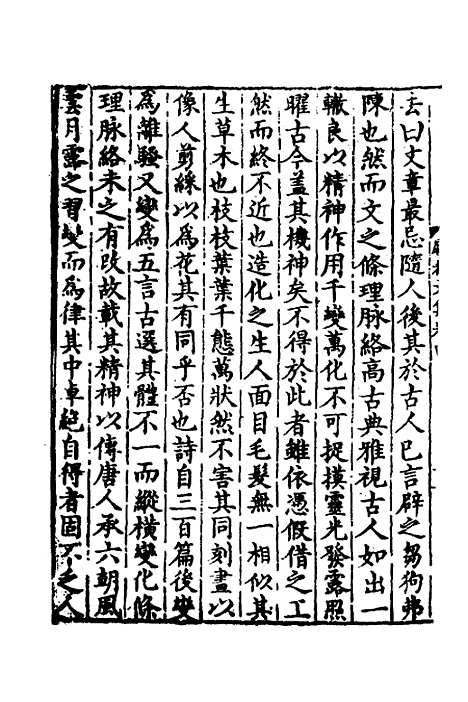 玄曰文章最忌隨人後其於古人已言辟之芻狗弗
陳也然而文之條理脉絡高古典雅視古人如出一
轍良以精神作用千變萬化不可捉摸靈光發露照
曜古今蓋其機神矣不得於此者雖依憑假借之工
然而終不近也造化之生人面目毛髮無一相似其
生草木也枝枝葉葉千態萬狀然不害其同刻畫以
像人剪綵以為花其有同乎否也詩自三百篇後變
為離騷又變為五言古選其體不一而縱橫變化條
理脉絡未之有改故載其精神以傳唐人承六朝風
雲月露之習變而為律其中卓絕自得者固不乏人